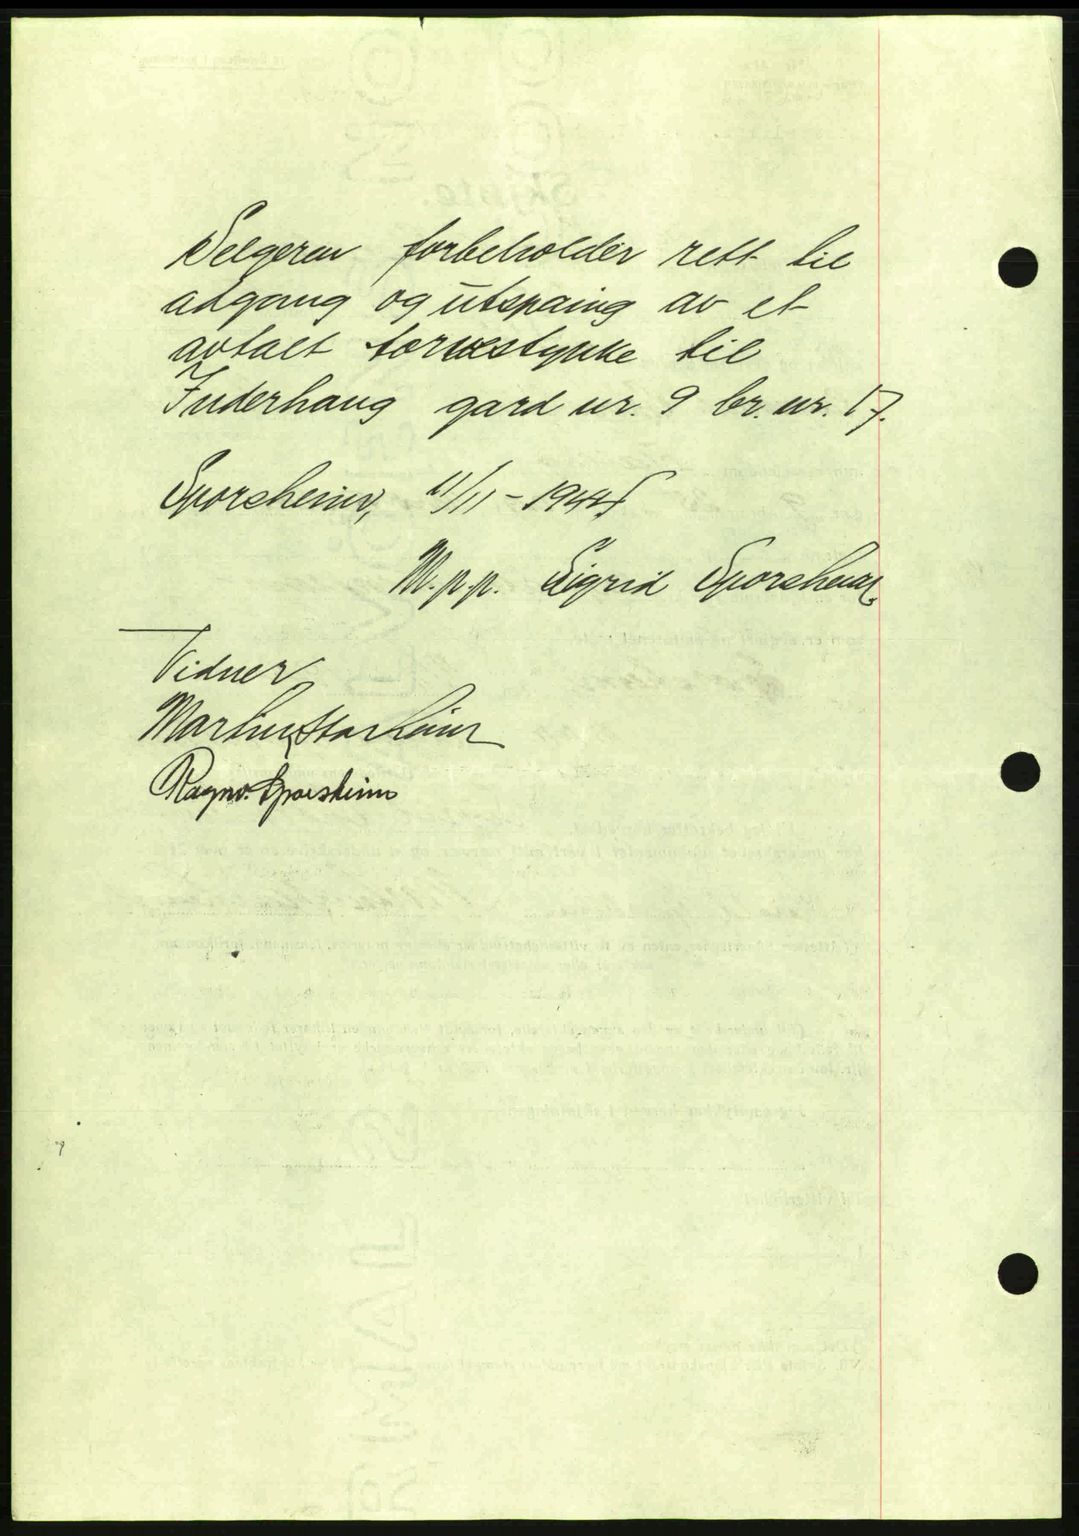 Selgeren forbeholder rett til
adgang og utspaing av et
avtalt torvestykke til
Inderhaug gard nr. 9 br. nr. 17.
Sporsheim, 11/11 - 1944
M.p.p. Sigrid Sporsheim
Vidner
Martin Storheim
Ragnv. Sporsheim